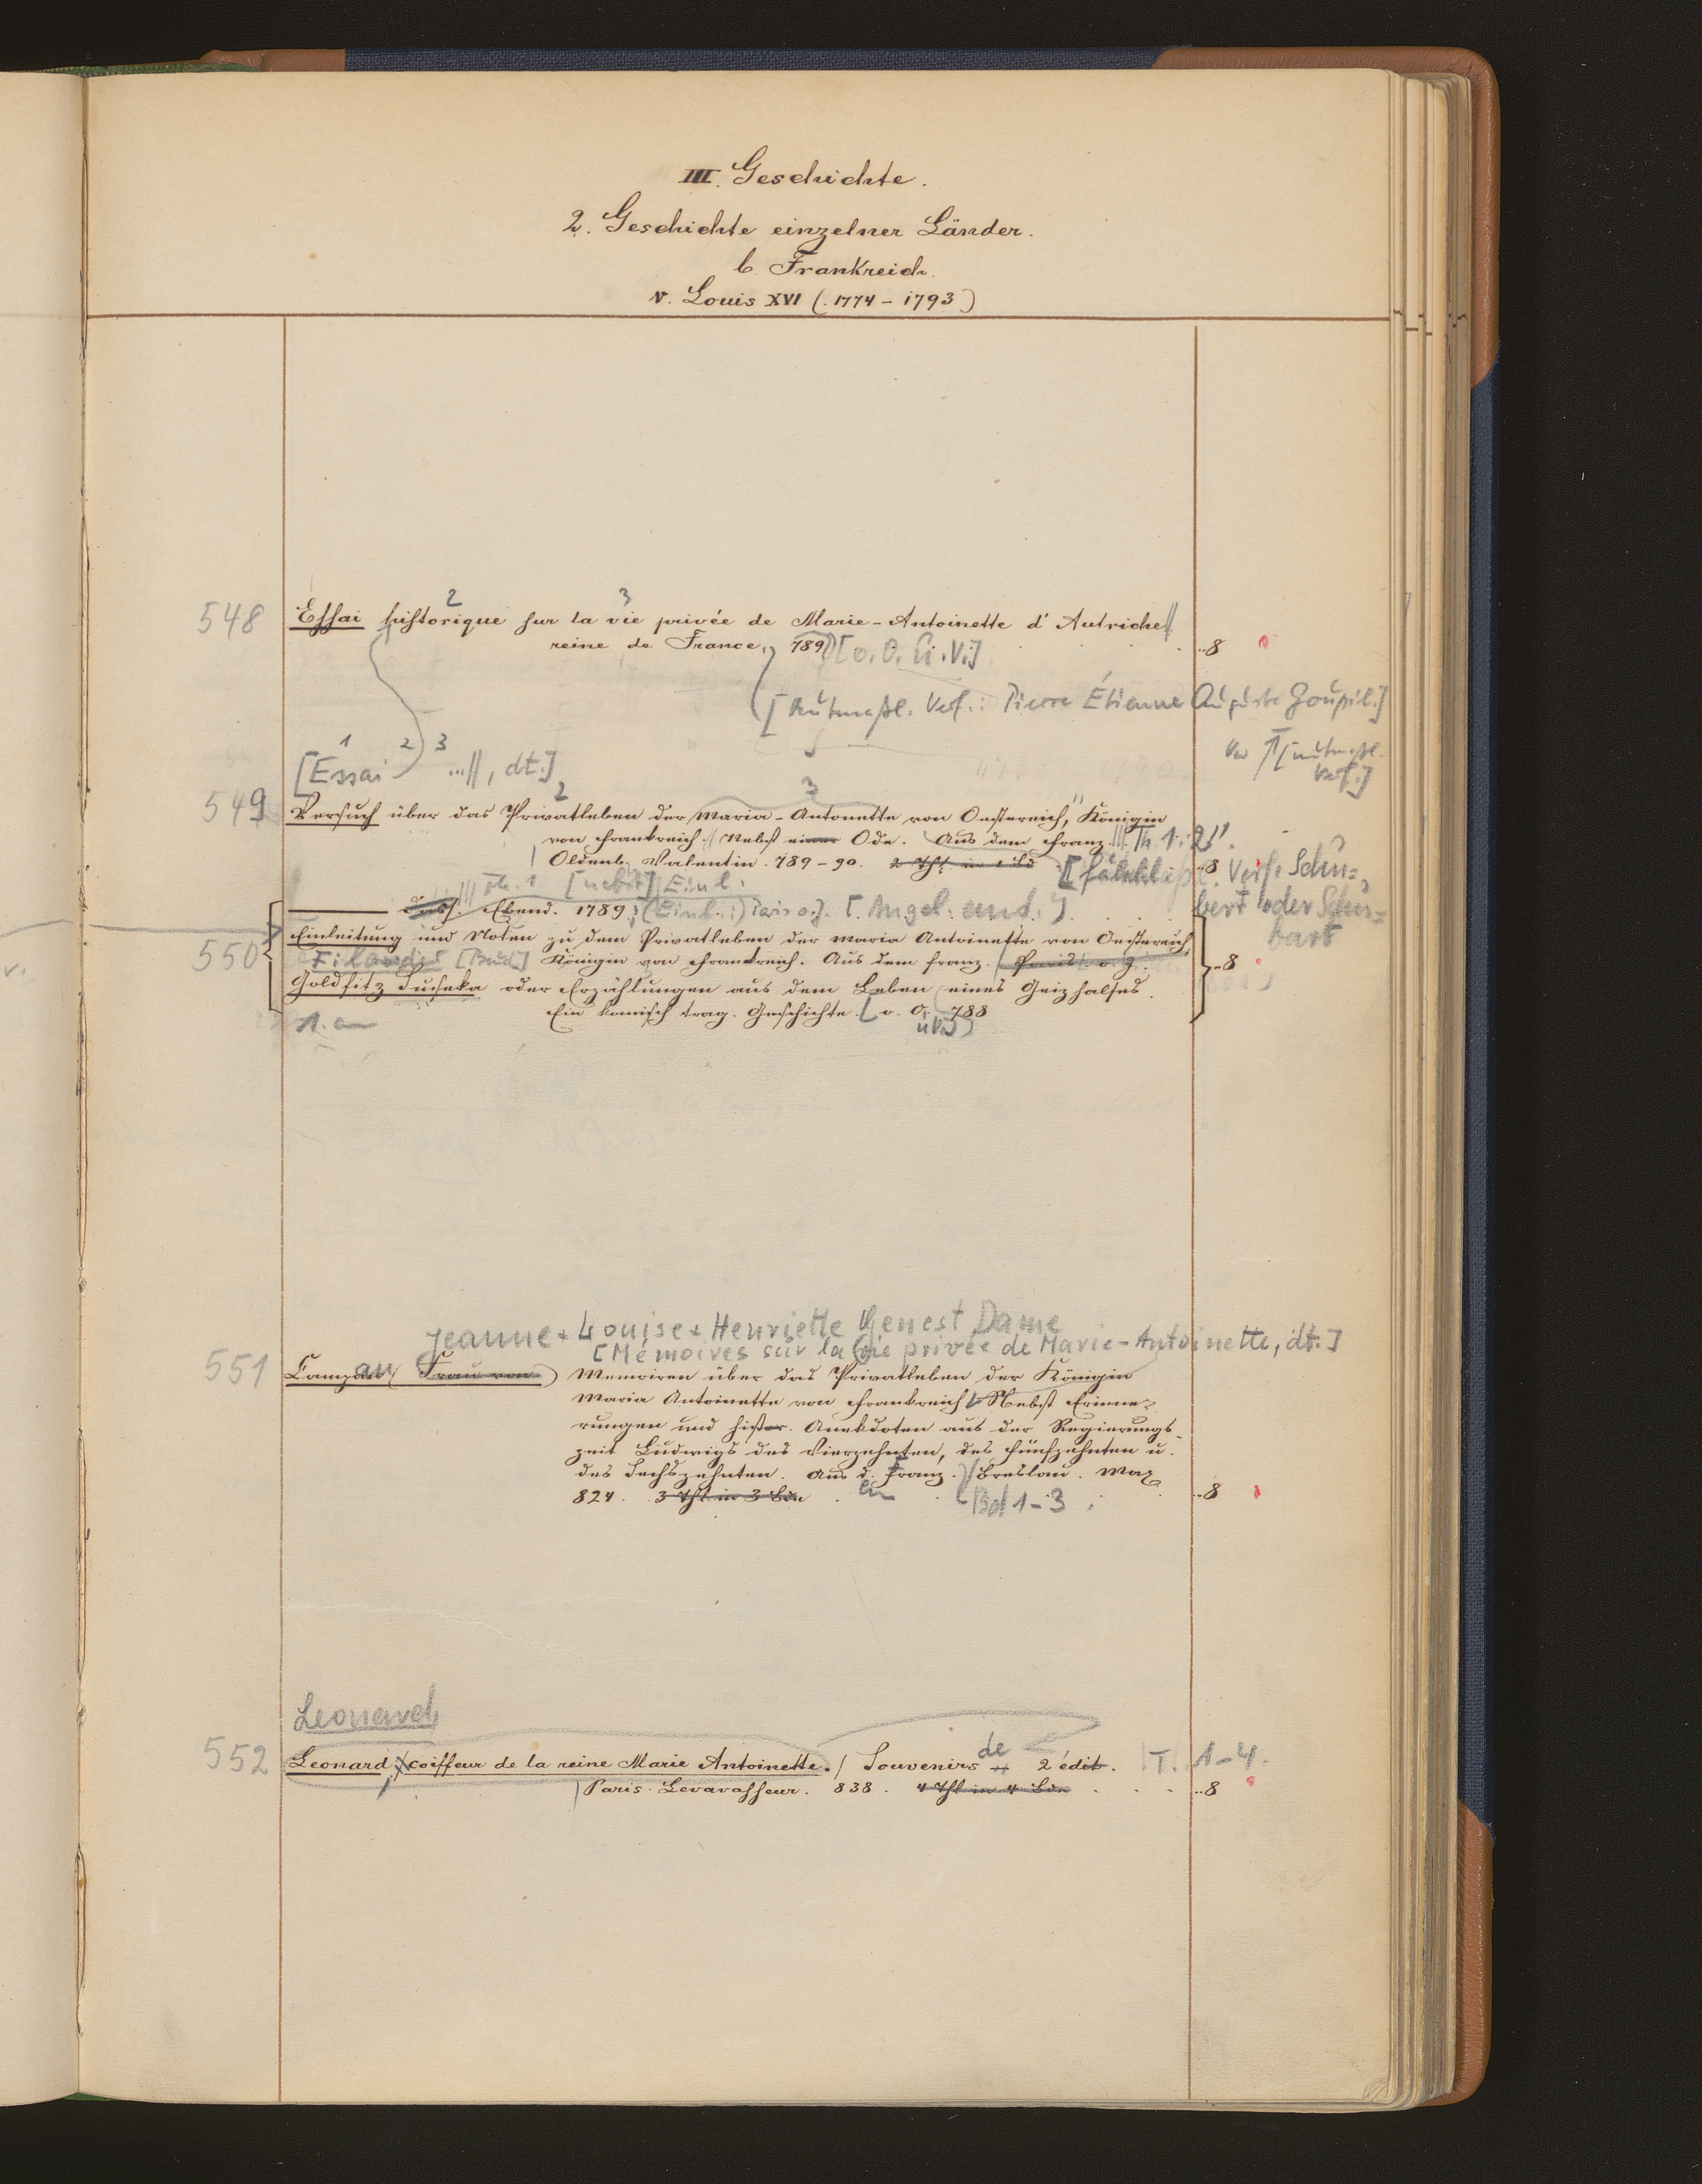 III. Geschichte.
2. Geschichte einzelner Länder.
b. Frankreich.
v. Louis XVI (.1774 - 1793)
2 3
548 Essai historique sur la vie privée de Marie-Antoinette d'Autriche
reine de France, 789 [o. O. u. V.] ..8
[Mutmaßl. Verf.: Pierre Étienne Auguste Goupil.]
[mutmaßl. Verf.]
1 2 3
[Essai ...//, dt.]
2 3
549 Versuch über das Privatleben der Maria-Antonette von Oestereich, Königin
von Frankreich. Nebst einer Ode. Aus dem Franz. Th. 1. 2.
Oldenb. Valentin. 789-90. 2 Thl in 1 Bd [fälschl. Verf. Schu=
bert oder Schu=
bart
..8
Th. 1 [nebst] Einl.
Dass. Ebend. 1789. (Einl.:) Paris o. J. [Angeb. und.]
550 Einleitung und Noten zu dem Privatleben der Maria Antoinette von Oestereich,
Königin von Frankreich. Aus dem Franz. Paris. o. J. ..8
Goldfitz Suseka oder Erzählungen aus dem Leben eines Geizhalses.
Ein komisch trag. Geschichte. o. O. 788
Jeanne Louise Henriette Genest Dame
[Mémoires sur la vie privée de Marie-Antoinette, dt.]
551 Campan, Frau von Memoiren über das Privatleben der Königin
Maria Antoinette von Frankreich. Nebst Erinne=
rungen und histor. Anekdoten aus der Regierungs-
zeit Ludwigs des Vierzehnten, des Fünfzehnten u.
des Sechszehnten. Aus d. Franz. Breslau. Max
824. 3 Thl in 3 Bdn Bd 1-3. ..8
Leonard
552 Leonard, coiffeur de la reine Marie Antoinette. Souvenirs de 2 édit. T. 1-4.
Paris. Levavasseur. 838. 4 Thl in 4 Bdn ..8